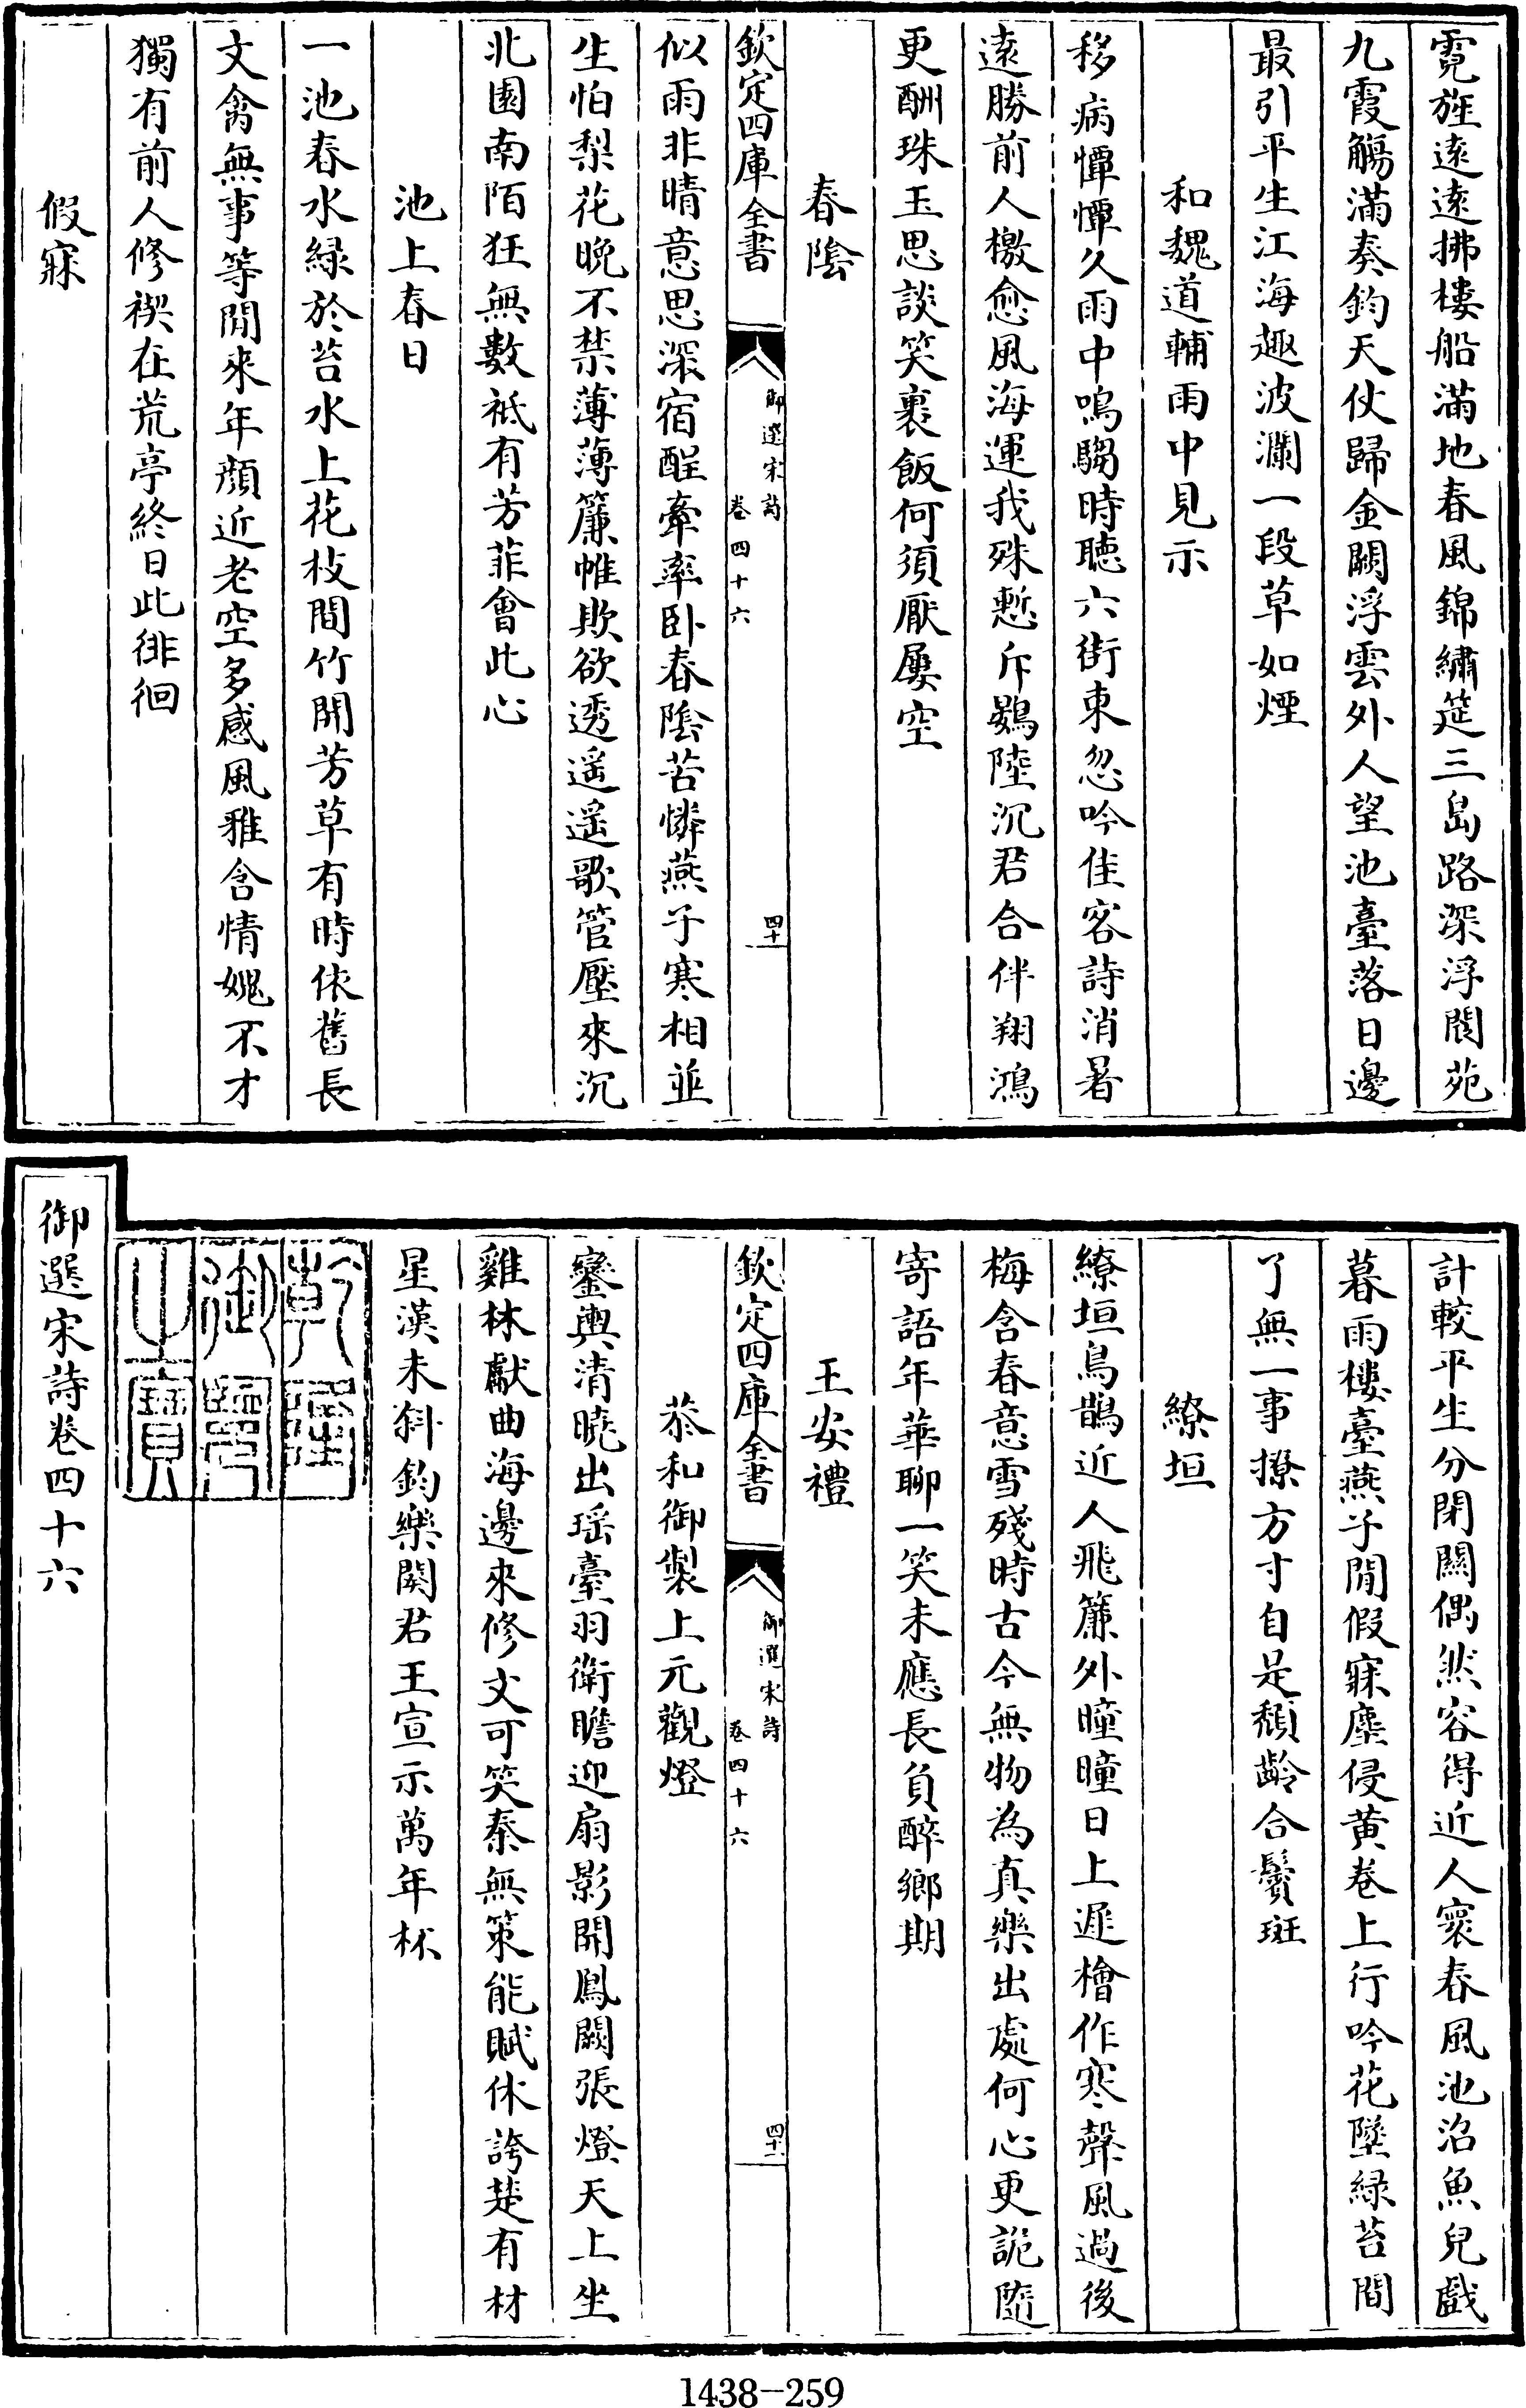 霓旌遠遠拂樓船滿地春風錦繡筵三島路深浮閬苑
九霞觴滿奏鈞天仗歸金闕浮雲外人望池臺落日邊
最引平生江海趣波瀾一段草如煙
和魏道輔雨中見示
移病憚憚久雨中鳴騶時聴六街東忽吟佳客詩消暑
遠勝前人檄愈風海運我殊慙斥鷃陸沉君合伴翔鴻
更酬珠玉思談笑裏飯何須厭屢空
春陰
欽定四庫全書
御選宋詩
卷四十六
四十
似雨非晴意思深宿酲牽率卧春陰苦憐燕子寒相並
生怕梨花晚不禁薄薄簾帷欺欲透遥遥歌管壓來沉
北園南陌狂無數祗有芳菲會此心
池上春日
一池春水緑於苔水上花枝間竹開芳草有時依舊長
文禽無事等閒來年顔近老空多感風雅含情媿不才
獨有前人修禊在荒亭終日此徘徊
假寐
計較平生分閉關偶然容得近人寰春風池沼魚兒戲
暮雨樓臺燕子閒假寐塵侵黄卷上行吟花墜緑苔間
了無一事撩方寸自是頽齡合鬢斑
繚垣
繚垣烏鵲近人飛簾外曈曈日上遲檜作寒聲風過後
梅含春意雪殘時古今無物為真樂出處何心更詭隨
寄語年華聊一笑未應長負醉鄉期
王安禮
欽定四庫全書
御選宋詩
卷四十六
四十一
恭和御製上元觀燈
鑾輿清曉出瑶臺羽衛瞻迎扇影開鳳闕張燈天上坐
雞林獻曲海邊來修文可笑秦無策能賦休誇楚有材
星漢未斜鈞樂闋君王宣示萬年杯
乾隆
御覽
之寶
御選宋詩卷四十六
1438-259